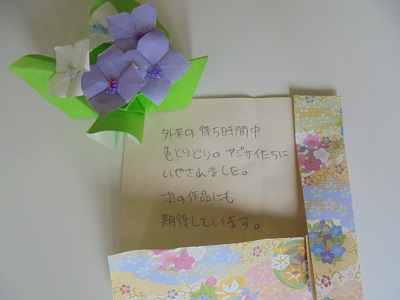 外来の待ち時間中
色とりどりのアジサイたちに
いやされました。
次の作品にも
期待しています。